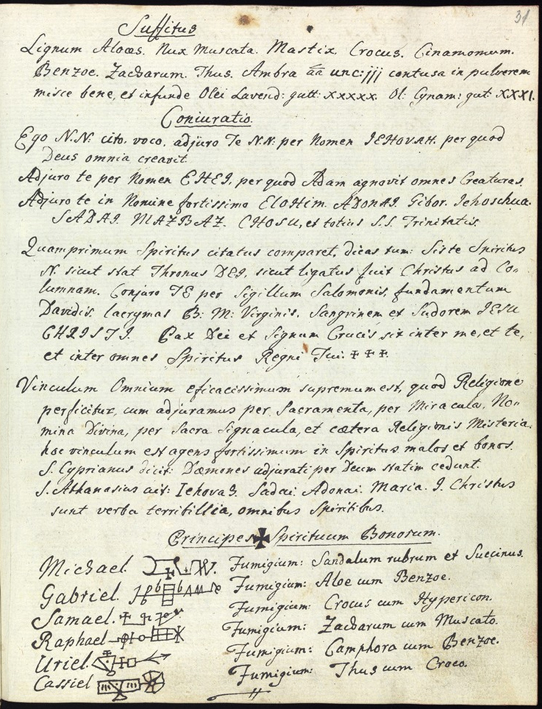 31
Suffitus
Lignum Aloes. Nux Muscata. Mastix Crocus. Cinamomum.
Benzoe. Zacharum. Thus. Ambra aa unc: jjj contusa in pulverem
misce bene, et infunde Olei Lavend: gutt: xxxxx. Ol. Cynam: gut: XXXI.
Coniuratio
Ego N.N: cito. voco. adjuro Te N.N: per Nomen JEHOVAH. per quod
Deus omnia creavit.
Adjuro te per Nomen EHEI. per quod Adam agnovit omnes Creaturas.
Adjuro te in Nomine fortissimo ElOHim. ADONAI Gibor. Jehoschua.
SADAI. MAZBAZ. CHOSU, et totius S.S. Trinitatis.
Quamprimum Spiritus citatus comparet, dicas tum: Siste Spiritus
N. sicut stat Thronus DEI, sicut ligatus fuit Christus ad Co-
lumnam. Conjuro TE per Sigillum Salomonis, fundamentum
Davidis. lacrymas B: M: Virginis. Sanguinem et Sudorem JESU
CHRISTI. Pax Dei et Signum Crucis sit inter me, et te,
et inter omnes Spiritus Regni Tui. ✠ ✠ ✠.
Vinculum Omnium eficacissimum supremum est, quod Religione
perficitur, cum adjuramus per Sacramenta, per Miracula, No-
mina Divina, per Sacra Signacula, et cætera Religionis Misteria.
hoc vinculum est agens fortissimum in Spiritus malos et bonos.
S. Cyprianus dicit: Dæmones adjurati per Deum statim cedunt.
S. Athanasius ait: Jehova J. Sadai Adonai. Maria. J. Christus
sunt verba terribillia, omnibus Spiritibus.
Principes ✠ Spirituum Bonorum.
Michael. Fumigium: Sandalum rubrum et Succinus.
Gabriel. Fumigium: Aloe cum Benzoe.
Samael. Fumigium: Crocus cum Hypericon.
Raphael Fumigium: Zacharum cum Muscato.
Uriel. Fumigium: Camphora cum Benzoe.
Cassiel Fumigium: Thus cum Croco.